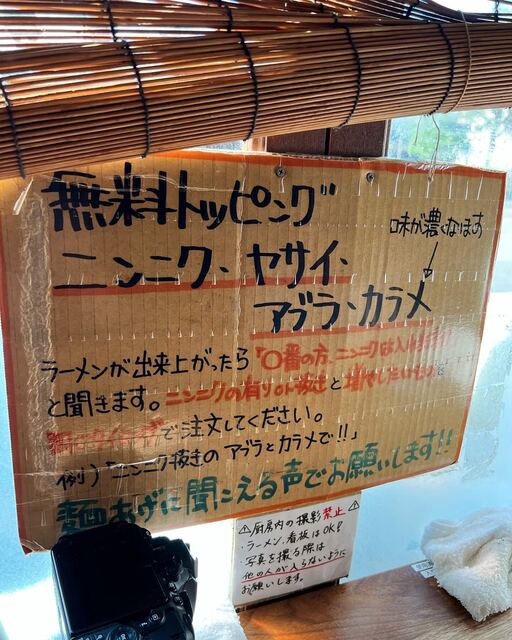 無料トッピング
ニンニク、ヤサイ、
味が濃くなります
アブラ、カラメ
ラーメンが出来上がったら「〇番の方、ニンニクは入れますか?」
と聞きます。ニンニクの有りor抜きと増やしたいものを
で注文してください。
例)「ニンニク抜きのアブラとカラメで!!」
麺あげに聞こえる声でお願いします!!
⚠厨房内の撮影禁止⚠
・ラーメン、看板はOK!
・写真を撮る際は
他の人が入らないように
お願いします。